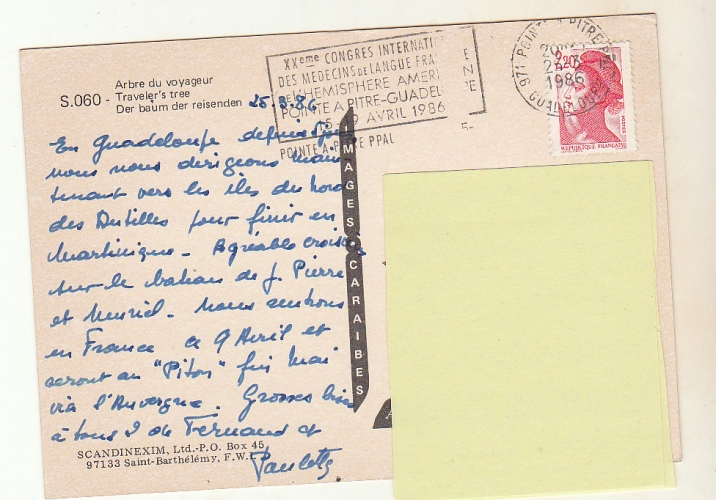 Arbre du voyageur
S.060 - Traveler's tree
Der baum der reisenden
XXeme CONGRES INTERNATI
DES MEDECINS DE LANGUE FRA E
DE L'HEMISPHERE AMERI N
POINTE A PITRE-GUADEL PE
5 9 AVRIL 1986
POINTE A PITRE PPAL
971 POINTE A PITRE PPAL
1986
GUADELOUPE
2,20
REPUBLIQUE FRANÇAISE
POSTES
25.3.86
En Guadeloupe depuis
nous nous dirigeons main
tenant vers les îles du Nord
des Antilles pour finir en
Martinique - Agréable croisière
sur le bateau de J. Pierre
et Muriel - Nous rentrons
en France le 9 Avril et
serons au "Piton" fin Mai
via l'Auvergne. Grosses bises
à tous 2 de Fernand et
Paulette
IMAGES CARAIBES
SCANDINEXIM, Ltd.-P.O. Box 45
97133 Saint-Barthélémy, F.W.I.